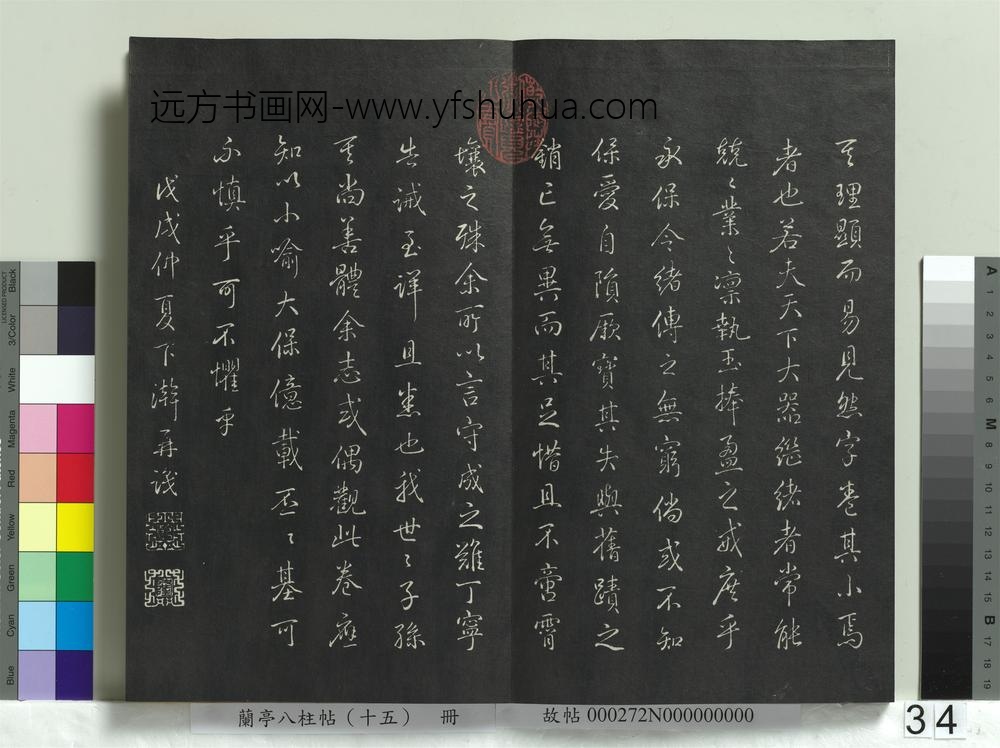 远方书画网-www.yfshuhua.com
其理顯而易見然字卷其小焉
者也若夫天下大器繼緒者常能
兢〻業〻凛執玉捧盈之戒庶乎
永保令緒傳之無窮倘或不知
保愛自隕厥寶其失與舊蹟之
銷亡無異而其足惜且不啻霄
壤之殊余所以言守成之難丁寧
告誡至詳且悉也我世〻子孫
其尚善體余志或偶觀此卷應
知以小喻大保億載丕〻基可
不慎乎可不懼乎
戊戌仲夏下澣再識
蘭亭八柱帖（十五） 冊
故帖 000272N000000000
34
Black
3/Color
White
Magenta
Red
Yellow
Green
Cyan
Blue
A
1
2
3
4
5
6
M
8
9
10
11
12
13
14
15
B
17
18
19